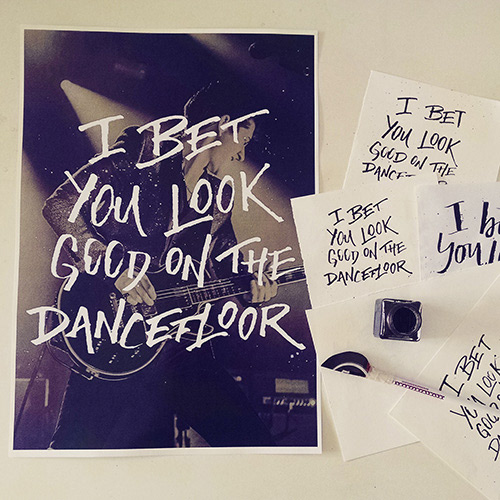 I BET
YOU LOOK
GOOD ON THE
DANCEFLOOR
I BET
YOU LOOK
GOOD ON THE
I BET
YOU LOOK
GOOD ON THE
DANCEFLOOR
I
YOU
I BET
YOU LOOK